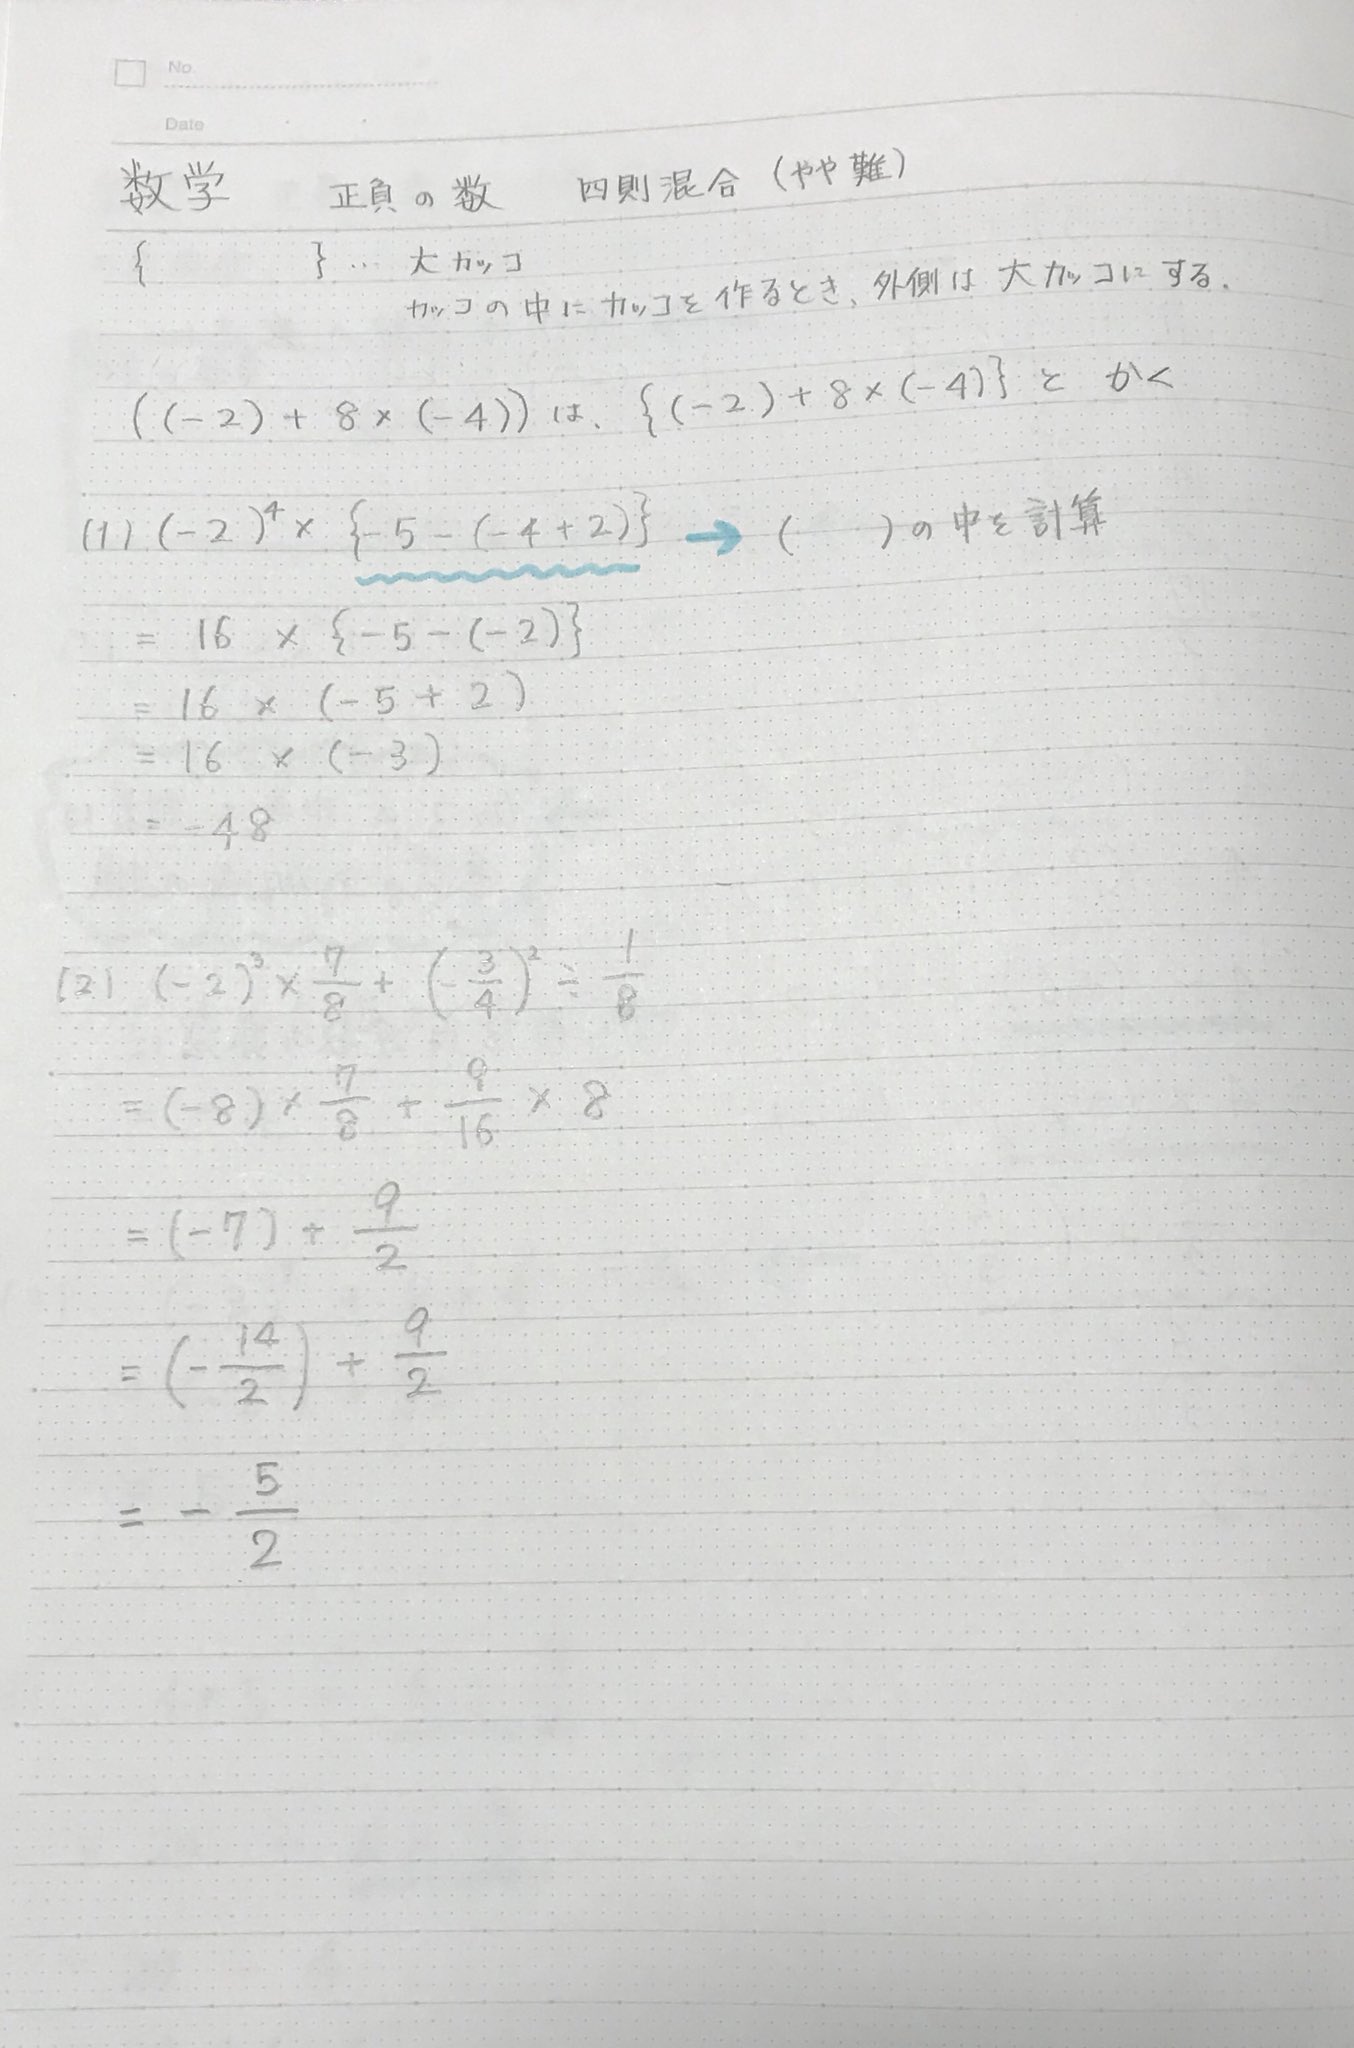 No.
Date
数学 正負の数 四則混合 (やや難)
{ } … 大カッコ
カッコの中にカッコを作るとき、外側は大カッコにする.
((-2) + 8 × (-4)) は、{(-2) + 8 × (-4)} と かく
(1) (-2)⁴ × {-5 - (-4 + 2)} → ( )の中を計算
= 16 × {-5 - (-2)}
= 16 × (-5 + 2)
= 16 × (-3)
= -48
(2) (-2)³ × 7/8 + (-3/4)² ÷ 1/8
= (-8) × 7/8 + 9/16 × 8
= (-7) + 9/2
= (-14/2) + 9/2
= - 5/2